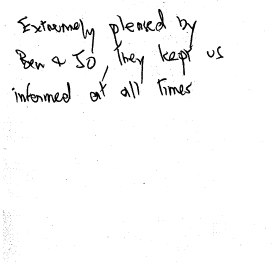 Extremely pleased by
Ben & Jo, They kept us
informed at all times